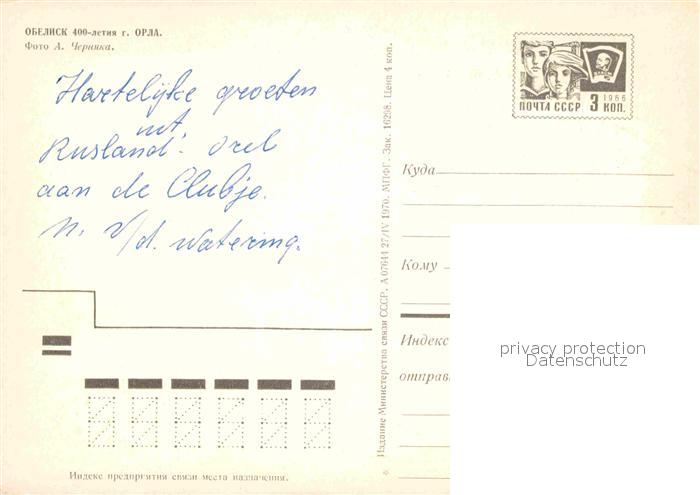 ОБЕЛИСК 400-летия г. ОРЛА.
Фото А. Черняка.
Hartelijke groeten
uit
Rusland. Orel
aan de Clubje.
N. v/d. Watering.
Издание Министерства связи СССР. А 07644 27/IV 1970. МПФГ. Зак. 16298. Цена 4 коп.
ПОЧТА СССР 3 КОП. 1966
Куда
Кому
Индекс
отправ
privacy protection
Datenschutz
Индекс предприятия связи места назначения.